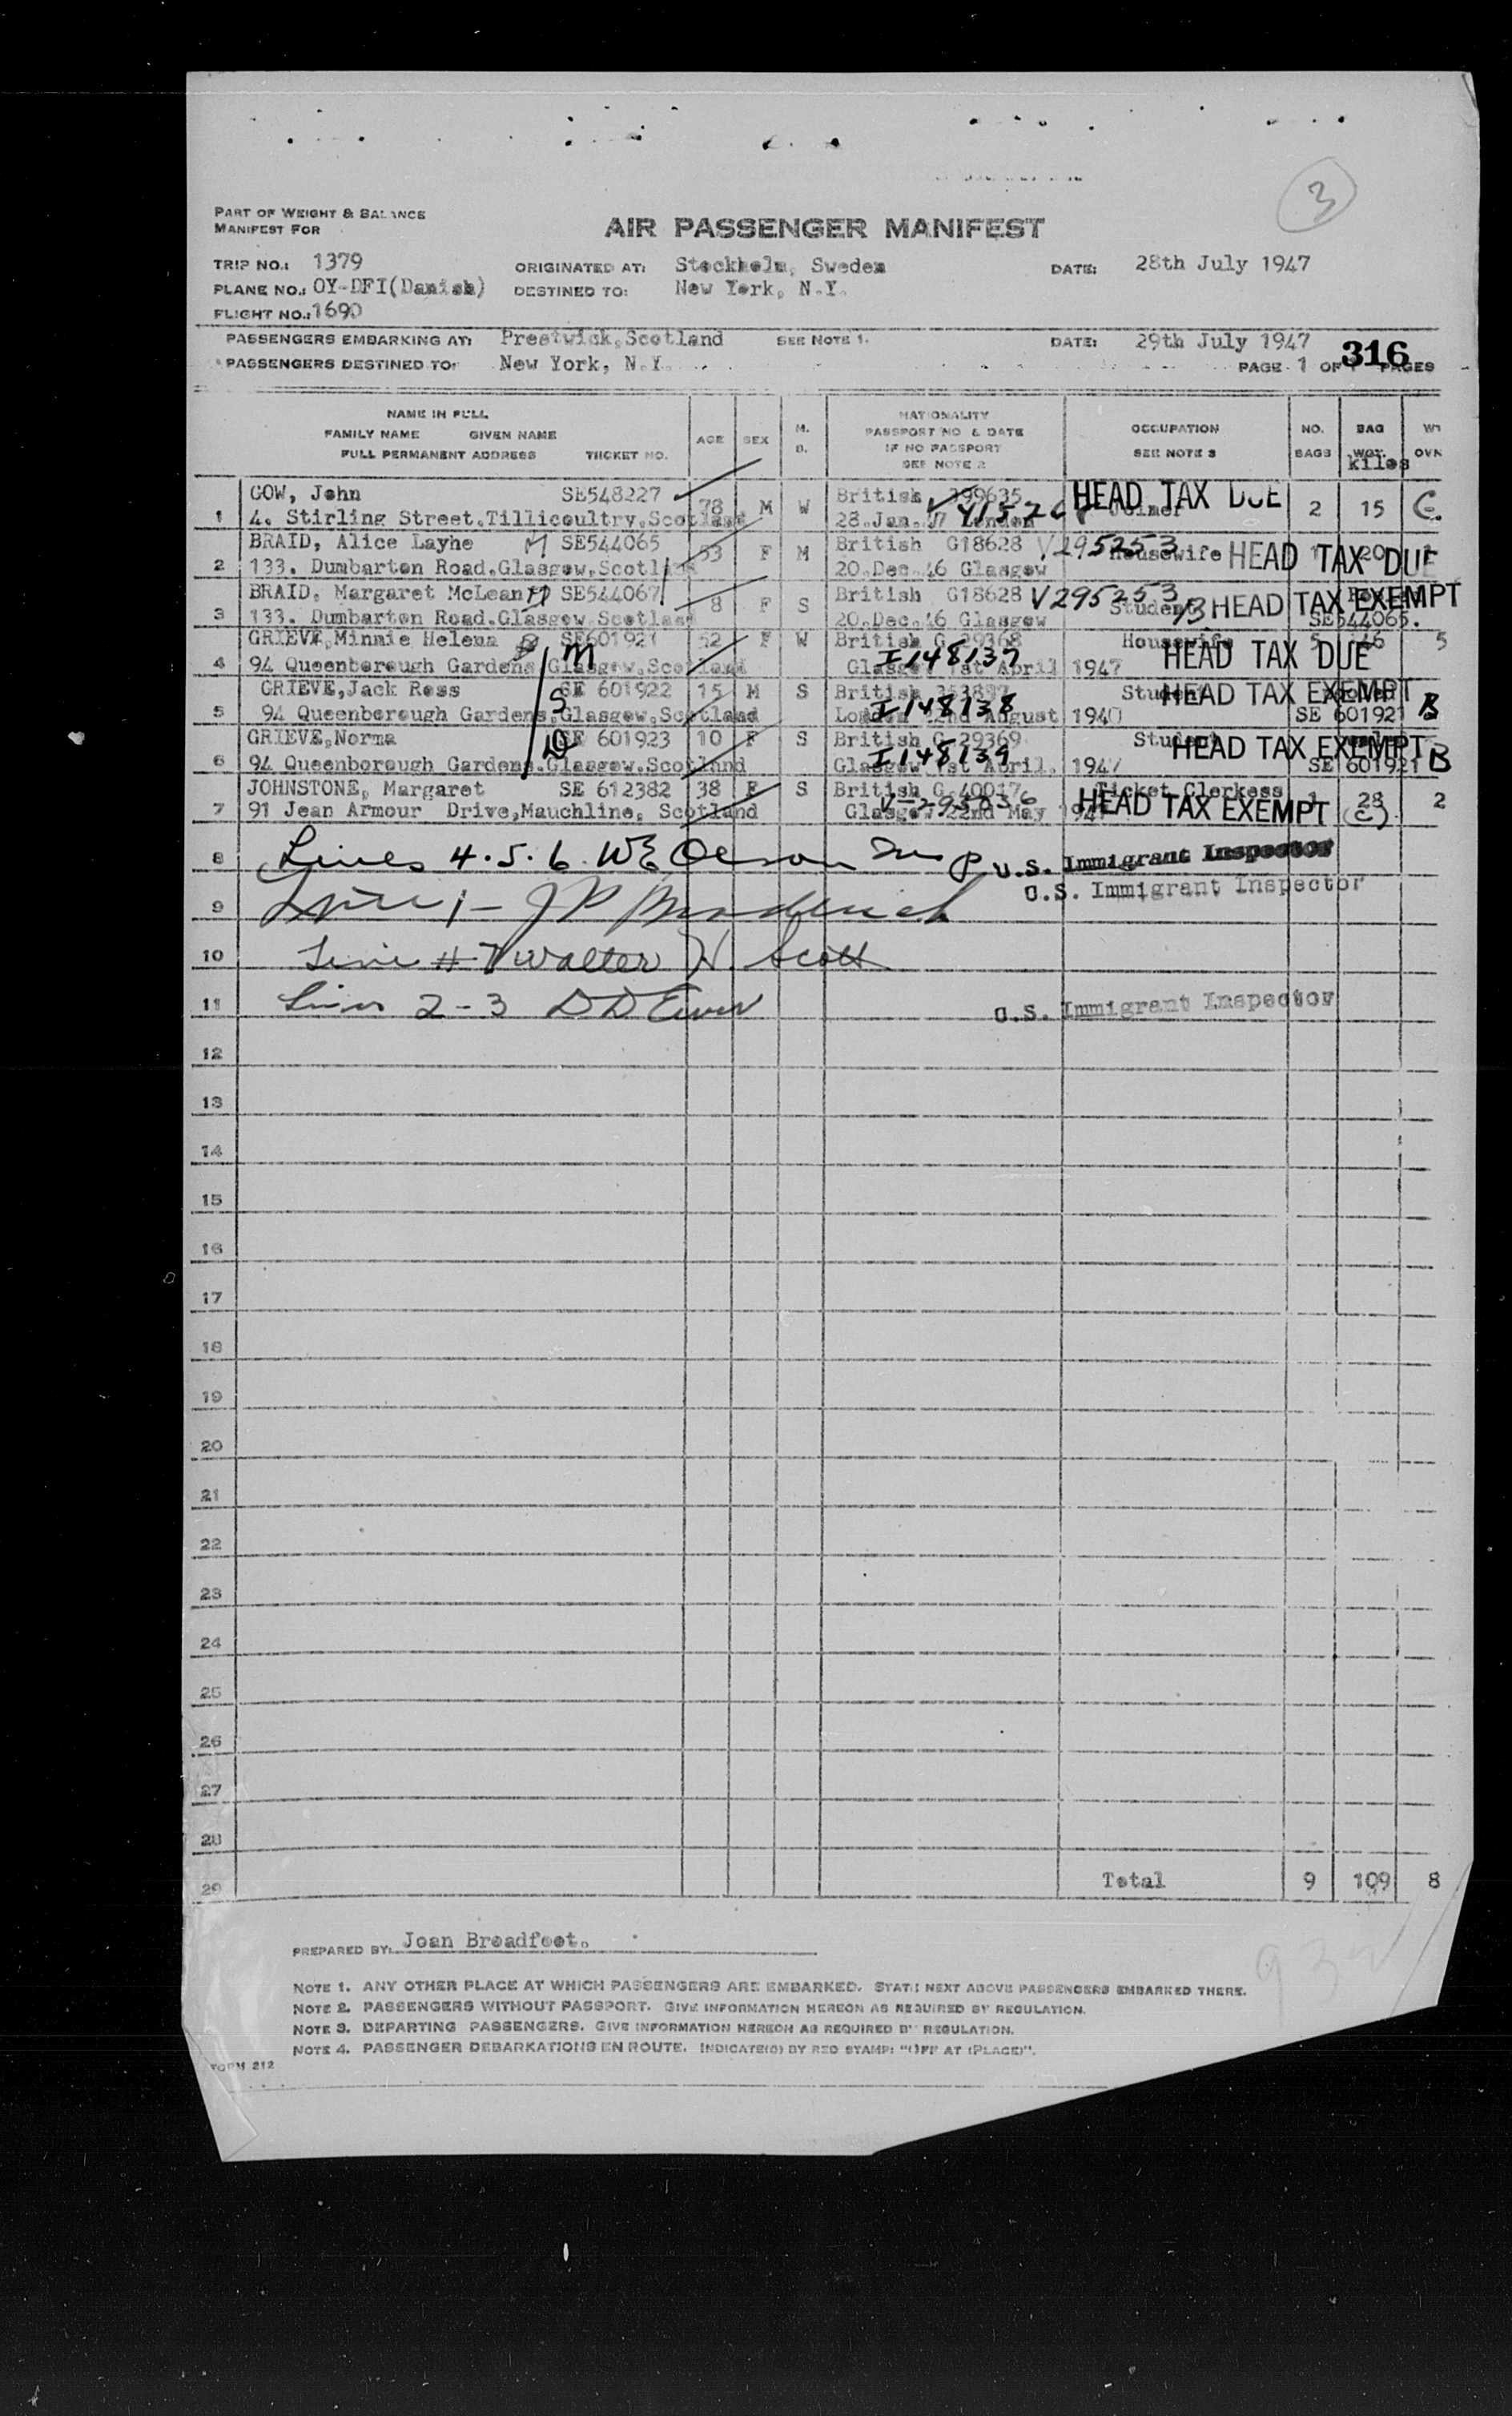 3
PART OF WEIGHT & BALANCE
MANIFEST FOR
AIR PASSENGER MANIFEST
TRIP NO.: 1379 ORIGINATED AT: Stockholm, Sweden DATE: 28th July 1947
PLANE NO.: OY-DFI(Danish) DESTINED TO: New York, N.Y.
FLIGHT NO.: 1690
PASSENGERS EMBARKING AT: Prestwick, Scotland SEE NOTE 1. DATE: 29th July 1947
PASSENGERS DESTINED TO: New York, N.Y. PAGE 1 OF PAGES
316
NAME IN FULL
FAMILY NAME GIVEN NAME
FULL PERMANENT ADDRESS TICKET NO.
AGE SEX M. S.
NATIONALITY
PASSPORT NO & DATE
IF NO PASSPORT
SEE NOTE 2
OCCUPATION
SEE NOTE 3
NO. BAGS
BAG WGT. kilos
WT OVN
GOW, John SE548227 78 M W British 399635 HEAD TAX DUE 2 15 C.
1 4. Stirling Street.Tillicoultry.Scotland 28.Jan. London
BRAID, Alice Layhe M SE544065 53 F M British G18628 V295253 Housewife HEAD TAX DUE
2 133. Dumbarton Road.Glasgow.Scotland 20.Dec.46 Glasgow
BRAID, Margaret McLean D SE544067 8 F S British G18628 V295253 Student B HEAD TAX EXEMPT
3 133. Dumbarton Road.Glasgow.Scotland 20.Dec.46 Glasgow SE544065.
GRIEVE,Minnie Helena SE601921 M 52 F W British G 29368 I148137 Housewife HEAD TAX DUE 5 46 5
4 94 Queenborough Gardens Glasgow,Scotland Glasgow 1st April 1947
GRIEVE,Jack Ross S SE 601922 15 M S British I148138 Student HEAD TAX EXEMPT
5 94 Queenborough Gardens,Glasgow,Scotland London 22nd August 1940 SE 601921 B
GRIEVE,Norma D SE 601923 10 F S British G 29369 I148139 Student HEAD TAX EXEMPT
6 94 Queenborough Gardens.Glasgow.Scotland Glasgow 1st April. 1947 SE 601921 B
JOHNSTONE, Margaret SE 612382 38 F S British G 40017 Ticket Clerkess 1 28 2
7 91 Jean Armour Drive,Mauchline, Scotland Glasgow 22nd May HEAD TAX EXEMPT (C)
8 Lines 4.5.6. WE Olson U.S. Immigrant Inspector
9 U.S. Immigrant Inspector
10 Line #7 Walter H. Scott
11 Lines 2-3 U.S. Immigrant Inspector
12
13
14
15
16
17
18
19
20
21
22
23
24
25
26
27
28
29 Total 9 109 8
PREPARED BY: Joan Broadfoot.
NOTE 1. ANY OTHER PLACE AT WHICH PASSENGERS ARE EMBARKED. STATE NEXT ABOVE PASSENGERS EMBARKED THERE.
NOTE 2. PASSENGERS WITHOUT PASSPORT. GIVE INFORMATION HEREON AS REQUIRED BY REGULATION.
NOTE 3. DEPARTING PASSENGERS. GIVE INFORMATION HEREON AS REQUIRED BY REGULATION.
NOTE 4. PASSENGER DEBARKATIONS EN ROUTE. INDICATE(D) BY RED STAMP: "OFF AT (PLACE)".
FORM 212